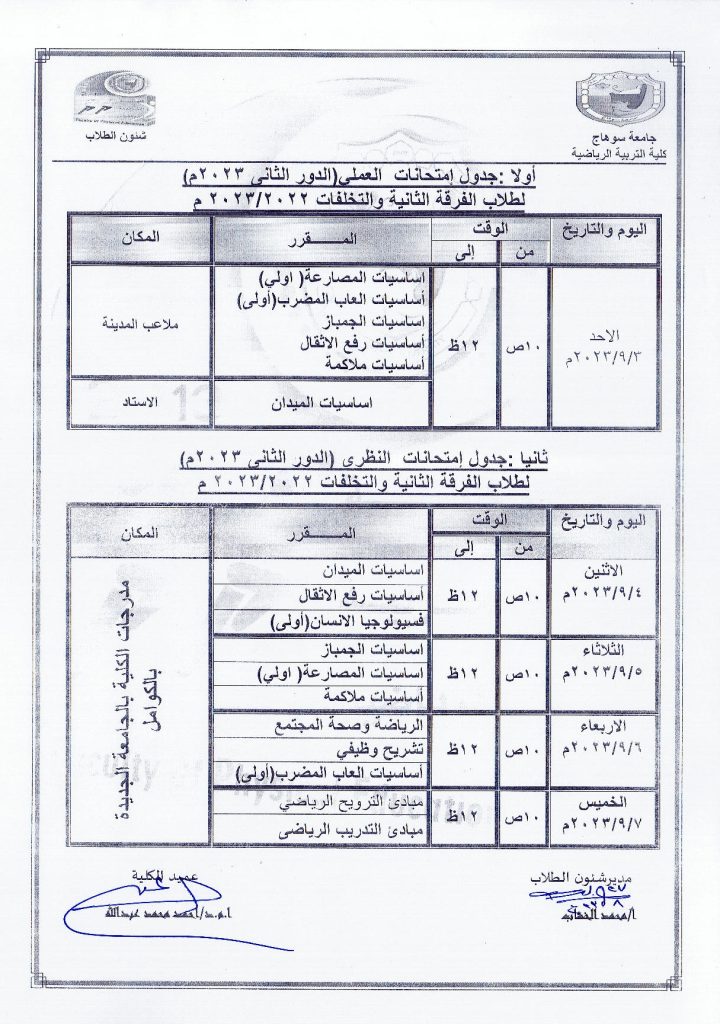 جامعة سوهاج
كلية التربية الرياضية
شئون الطلاب
أولا :جدول إمتحانات العملي(الدور الثانى ٢٠٢٣م)
لطلاب الفرقة الثانية والتخلفات ٢٠٢٣/٢٠٢٢ م
اليوم والتاريخ
الوقت
من
إلى
المـــــقرر
المكان
الاحد
٢٠٢٣/٩/٣م
١٠ص
١٢ظ
اساسيات المصارعة( اولي)
أساسيات العاب المضرب(أولى)
اساسيات الجمباز
أساسيات رفع الاثقال
أساسيات ملاكمة
ملاعب المدينة
اساسيات الميدان
الاستاد
ثانيا :جدول إمتحانات النظرى (الدور الثانى ٢٠٢٣م)
لطلاب الفرقة الثانية والتخلفات ٢٠٢٣/٢٠٢٢ م
اليوم والتاريخ
الوقت
من
إلى
المـــــقرر
المكان
الاثنين
٢٠٢٣/٩/٤م
١٠ص
١٢ظ
اساسيات الميدان
أساسيات رفع الاثقال
فسيولوجيا الانسان(أولى)
الثلاثاء
٢٠٢٣/٩/٥م
١٠ص
١٢ظ
اساسيات الجمباز
اساسيات المصارعة( اولي)
أساسيات ملاكمة
الاربعاء
٢٠٢٣/٩/٦م
١٠ص
١٢ظ
الرياضة وصحة المجتمع
تشريح وظيفي
أساسيات العاب المضرب(أولى)
الخميس
٢٠٢٣/٩/٧م
١٠ص
١٢ظ
مبادئ الترويح الرياضي
مبادئ التدريب الرياضى
مدرجات الكلية بالجامعة الجديدة
بالكوامل
مديرشئون الطلاب
ا/محمد
عميد الكلية
ا.م.د/احمد محمد عبدالله